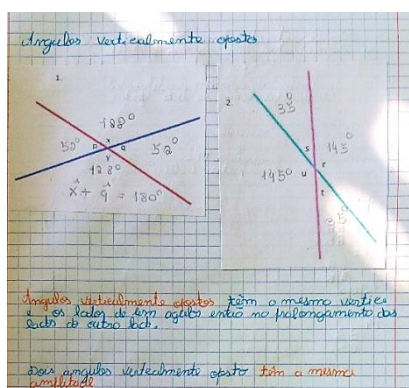 Angulos verticalmente opostos
1.
128°
x
52° p q 52°
y
128°
x̂ + q̂ = 180°
2.
35°
s 145°
r
145° u
t
35°
Angulos verticalmente opostos têm o mesmo vertice
e os lados de um agulo então no palongamento dos
lados do outro lado.
Dois angulos verticalmente oposto têm a mesma
amplitude